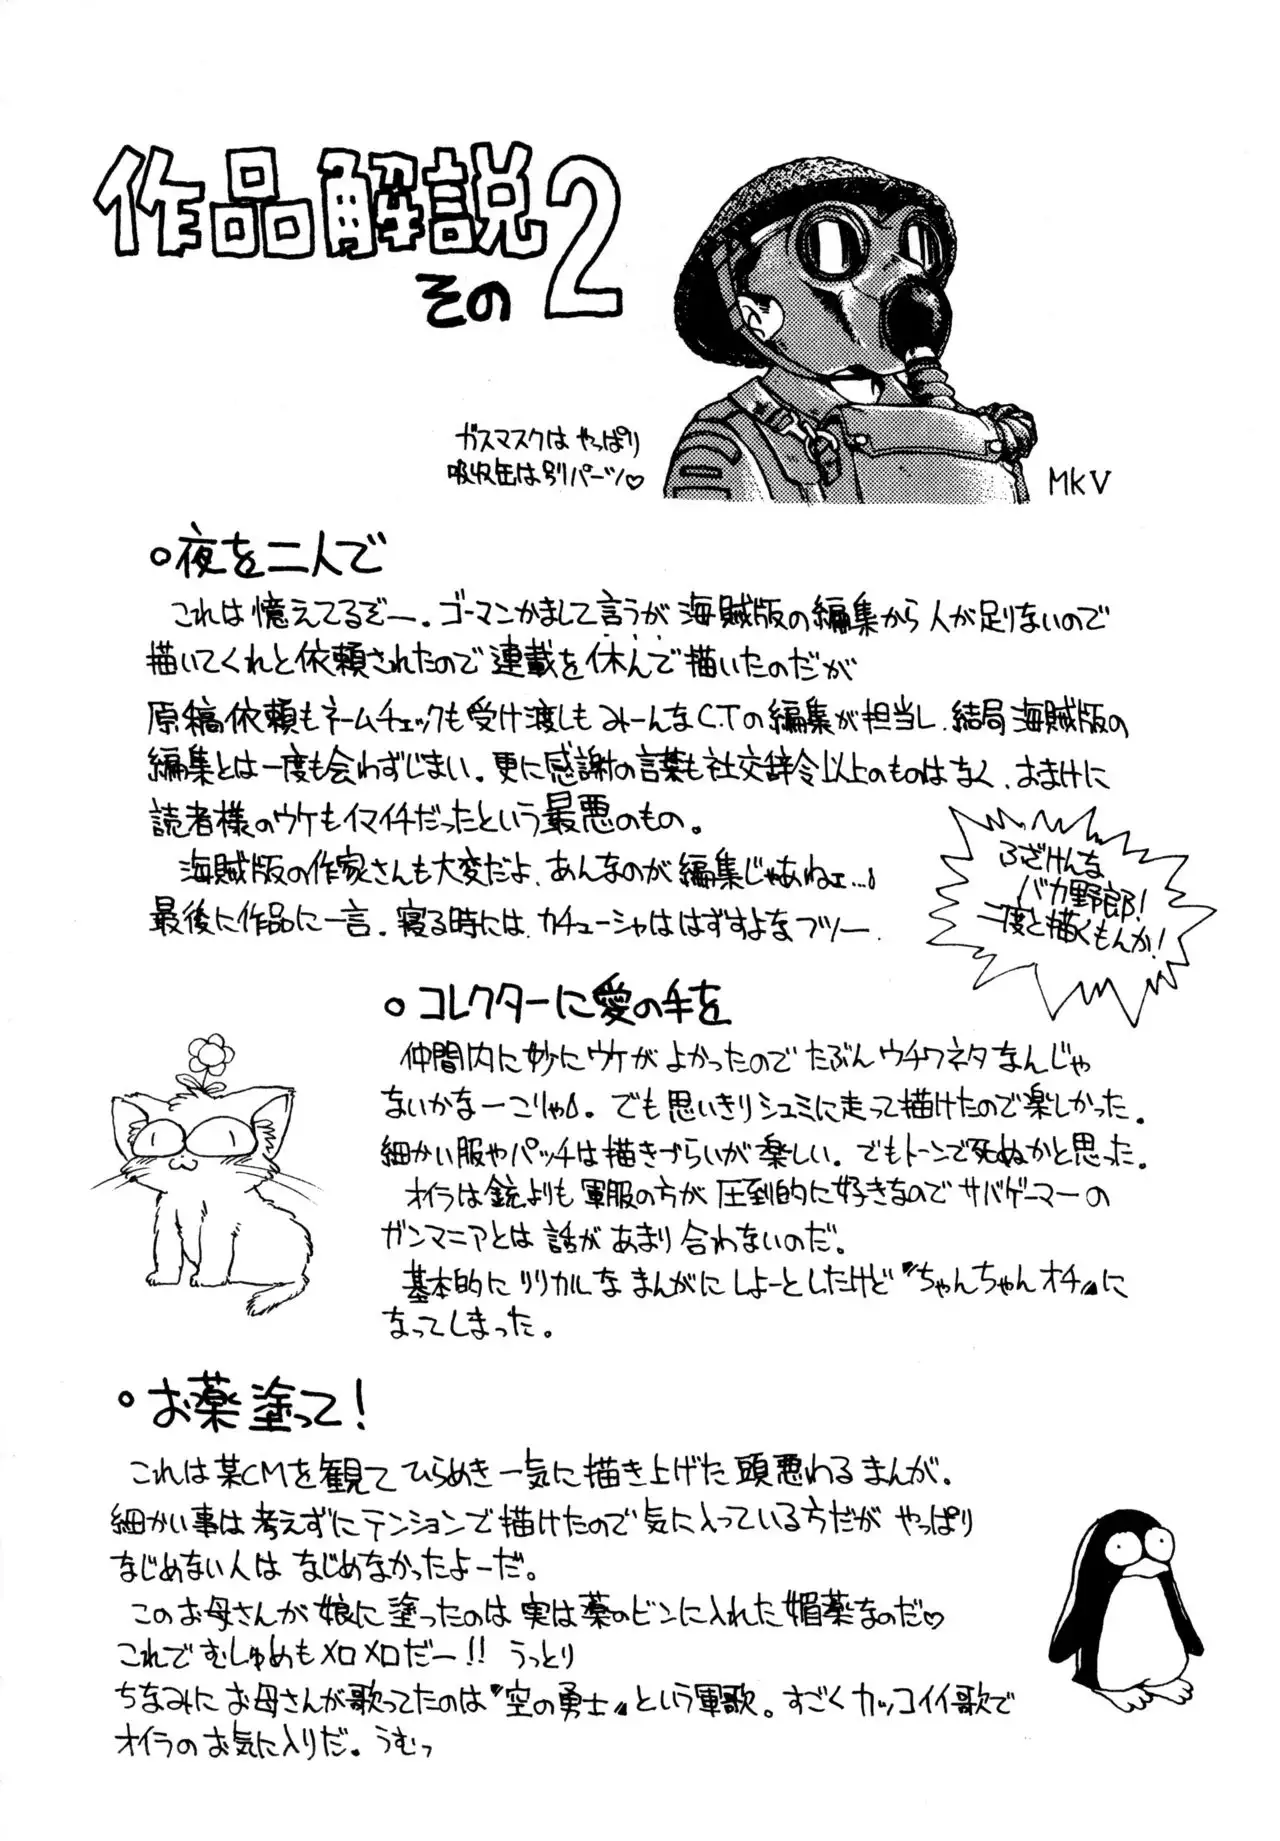 作品解説
その2
ガスマスクは やっぱり
吸収缶は別パーツ♡
MkV
○夜を二人で
これは憶えてるぞー。ゴーマンかまして言うが 海賊版の編集から人が足りないので
描いてくれと依頼されたので連載を休んで描いたのだが
原稿依頼もネームチェックも受け渡しもみーんなC.Tの編集が担当し、結局海賊版の
編集とは一度も会わずじまい。更に感謝の言葉も社交辞令以上のものはなく、おまけに
読者様のウケもイマイチだったという最悪のもの。
海賊版の作家さんも大変だよ、あんなのが編集じゃあねェ…♪
最後に作品に一言。寝る時には、カチューシャははずすよなフツー.
ふざけんな
バカ野郎!
二度と描くもんか!
○コレクターに愛の手を
仲間内に妙にウケがよかったので たぶんウチワネタなんじゃ
ないかなーこりゃ♪。でも思いきりシュミに走って描けたので楽しかった。
細かい服やパッチは描きづらいが楽しい。でもトーンで死ぬかと思った。
オイラは銃よりも軍服の方が圧倒的に好きなのでサバゲーマーの
ガンマニアとは 話があまり合わないのだ。
基本的にリリカルなまんがにしよーとしたけど〝ちゃんちゃんオチ〟に
なってしまった。
○お薬塗って!
これは某CMを観てひらめき一気に描き上げた頭悪わるまんが。
細かい事は考えずにテンションで描けたので気に入っている方だが やっぱり
なじめない人は なじめなかったよーだ。
このお母さんが娘に塗ったのは 実は薬のビンに入れた媚薬なのだ♡
これでむしゅめもメロメロだー!! うっとり
ちなみに お母さんが歌ってたのは〝空の勇士〟という軍歌。すごくカッコイイ歌で
オイラのお気に入りだ。うむっ